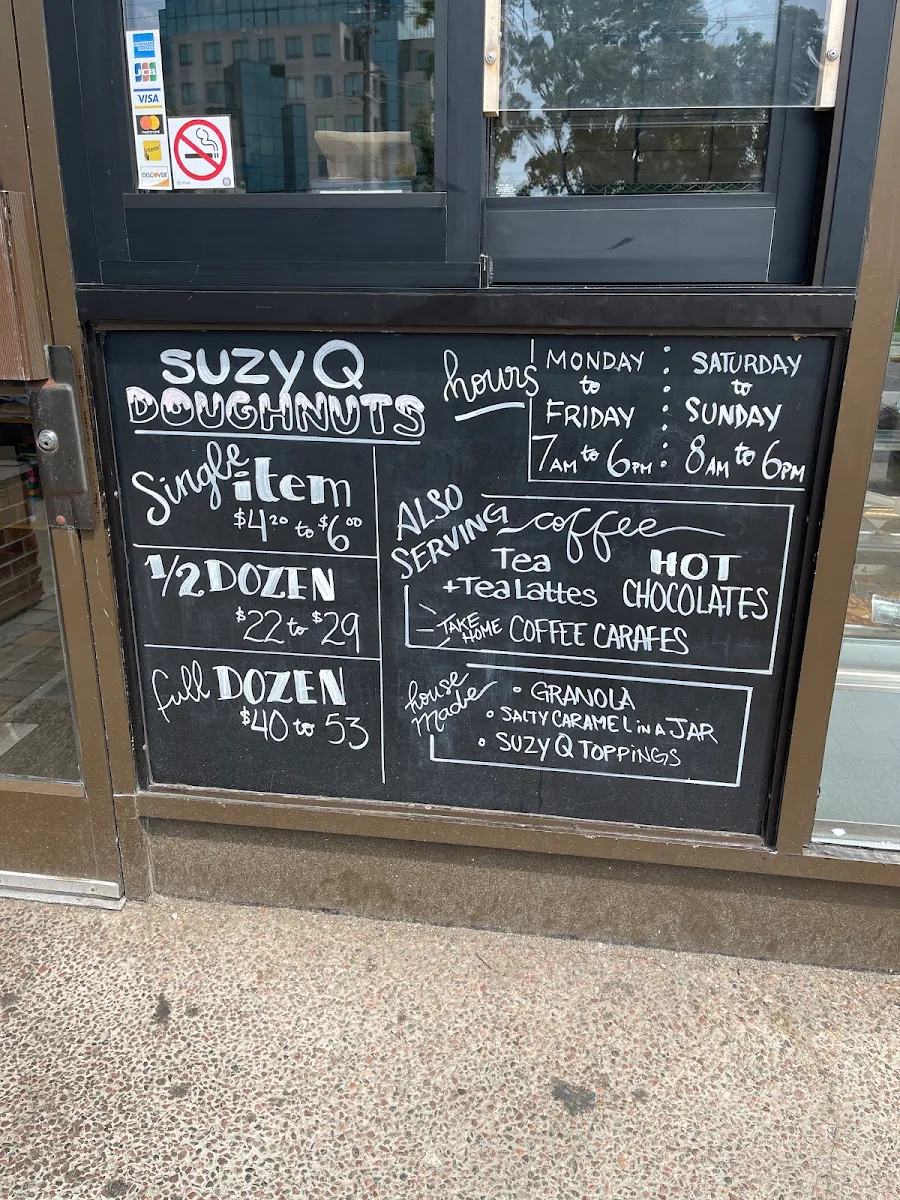 JCB
VISA
DISCOVER
SUZY Q
DOUGHNUTS
Single item
$4.20 to $6.00
1/2 DOZEN
$22 to $29
full DOZEN
$40 to 53
hours
MONDAY
to
FRIDAY
7AM to 6PM
SATURDAY
to
SUNDAY
8AM to 6PM
ALSO
SERVING
coffee
Tea
+Tea Lattes
HOT
CHOCOLATES
TAKE
HOME COFFEE CARAFES
house
Made
• GRANOLA
• SALTY CARAMEL in A JAR
• SUZY Q TOPPiNGS